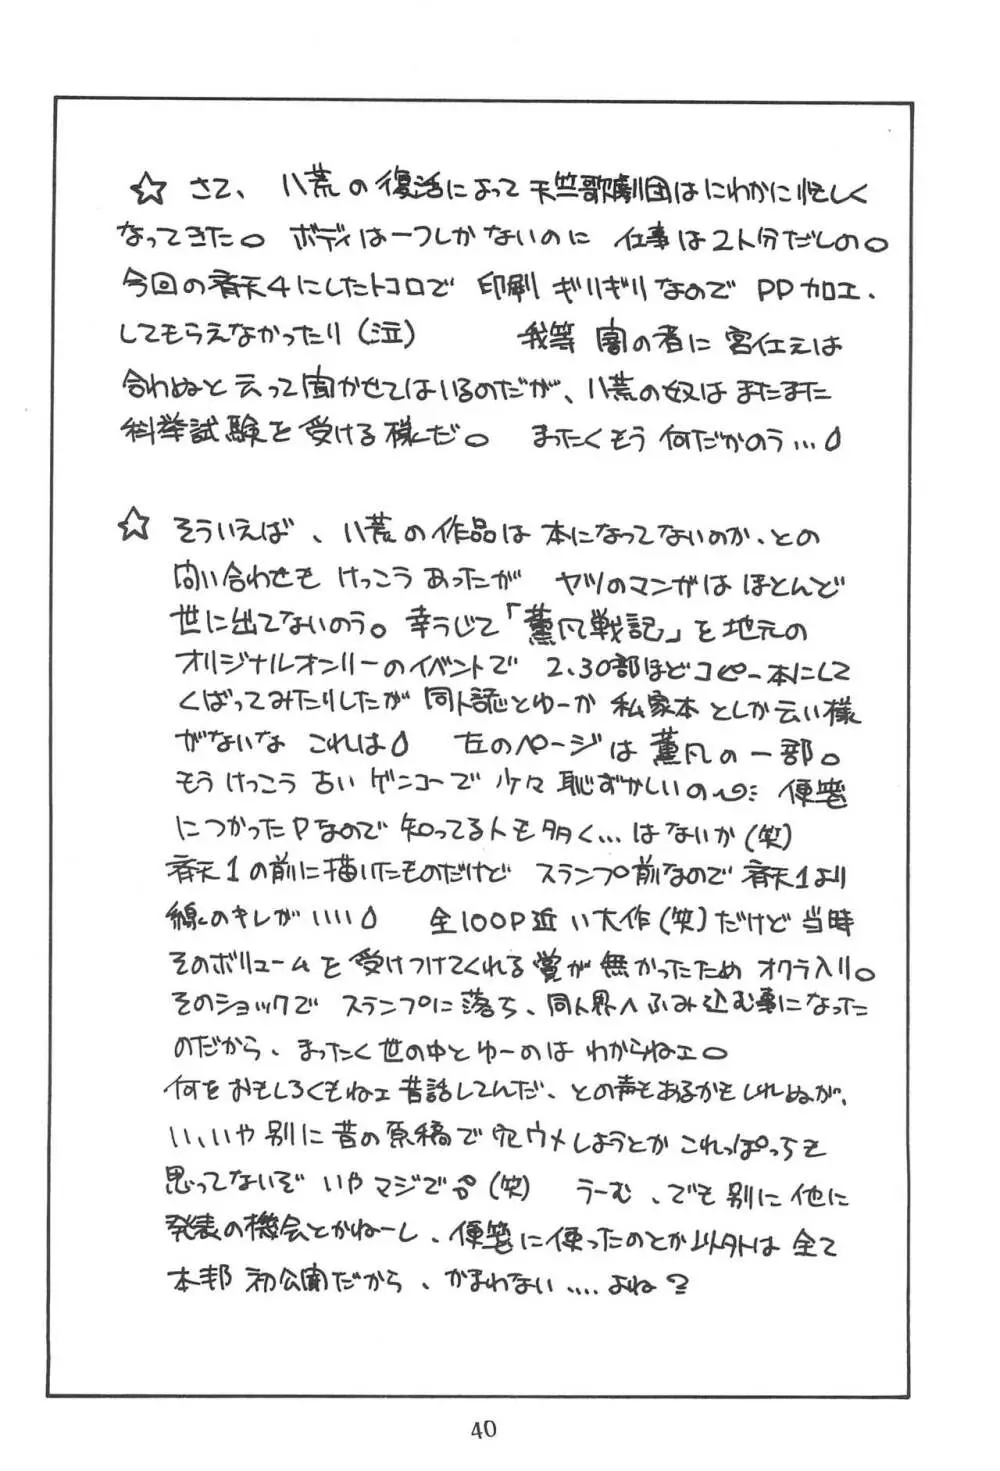 ☆ さて、八荒の復活によって天竺歌劇団はにわかに忙しく
なってきた。ボディは一つしかないのに 仕事は2人分だしの。
今回の斉天4にしたトコロで 印刷ギリギリなので PP加工、
してもらえなかったり(泣) 我等 闇の者に 宮仕えは
合わぬと云って聞かせてはいるのだが、八荒の奴は またまた
科挙試験を受ける様だ。 まったくもう 何だかのう…
☆ そういえば、八荒の作品は 本になってないのか、との
問い合わせも けっこう あったが ヤツのマンガは ほとんど
世に出てないのう。幸うじて「薫風戦記」を 地元の
オリジナルオンリーのイベントで 2.30部ほど コピー本にして
くばってみたりしたが 同人誌とゆーか 私家本 としか 云い様
がないな これは 左のページは 薫風の 一部。
もう けっこう 古い ゲンコーで 少々 恥ずかしいの〜 便箋
につかったPなので 知ってる人も 多く…はないか(笑)
斉天1の前に描いたものだけど スランプ前なので 斉天1より
線のキレがいいい 全100P近い大作(笑)だけど 当時
そのボリュームを 受けつけてくれる 賞が 無かったため オクラ入り。
そのショックで スランプに落ち、同人界へふみ込む事になった
のだから、まったく 世の中とゆーのは わからねェ。
何を おもしろくもねェ 昔話してんだ、との声もあるかもしれぬが、
い、いや 別に 昔の 原稿で 穴ウメしようとか これっぽっちも
思ってないぞ いや マジで (笑) うーむ、でも 別に 他に
発表の機会とかねーし、便箋に使ったのとか以外は 全て
本邦 初公開だから、かまわない….よね?
40